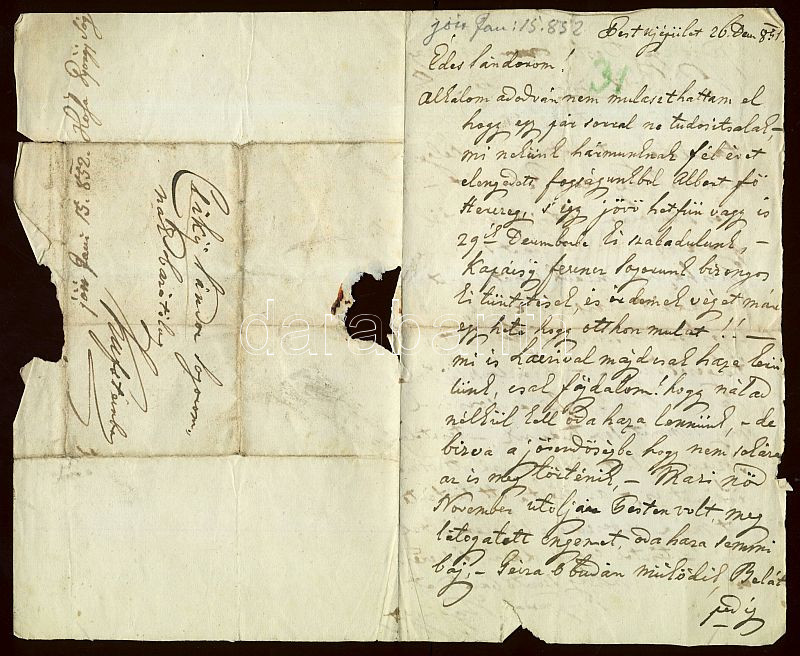 jött Jan: 15. 852
Pest Ujépület 26. Decm 851.
Édes Sándorom!
31
Alkalom adodván nem mulaszthattam el
hogy egy pár sorral ne tudositsalak,
mi nekünk hármunknak fél évet
elengedett fogságunkból Albert fő
Herczeg, s igy jövő hetfün vagy is
29 Decemberbe ki szabadulunk, –
ferencz Sogorunk bizonyos
ki tüntetések, és érdemek véget már
egy hete hogy otthon mulat!! –
mi is majd csak haza kerü
lünk, csak fájdalom! hogy nálad
nélkül kell oda haza lennünk, – de
bizva a jövendőségbe hogy nem sokára
az is meg történik, – Mari nőd
November utolján Pesten volt, meg
látogatott engemet, oda haza semmi
baj, – Géza Budán mülödik, Belát
pedig
Csáky Sándor Sogorom,
nak baráti
Kufsteinba
jött Jan: 15. 852.
darabanth